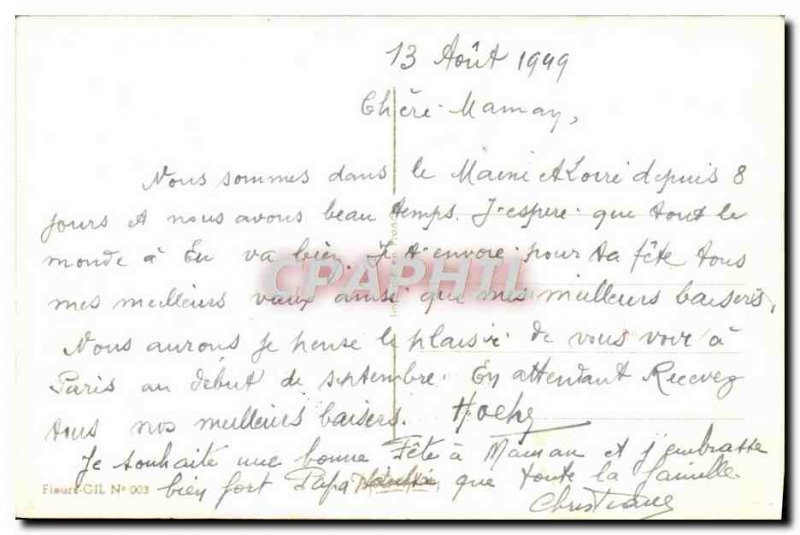 13 Août 1949
Chère Maman,
Nous sommes dans le Maine & Loire depuis 8
jours et nous avons beau temps. J'espère que tout le
monde à Eu va bien. Je t'envoie pour ta fête tous
mes meilleurs vœux ainsi que mes meilleurs baisers.
Nous aurons je pense le plaisir de vous voir à
Paris au début de septembre. En attendant Recevez
tous nos meilleurs baisers.
Je souhaite une bonne Fête à Maman et j'embrasse
bien fort Papa que toute la famille
Christiane
Fleurs-GIL N° 003
CPAPHIL